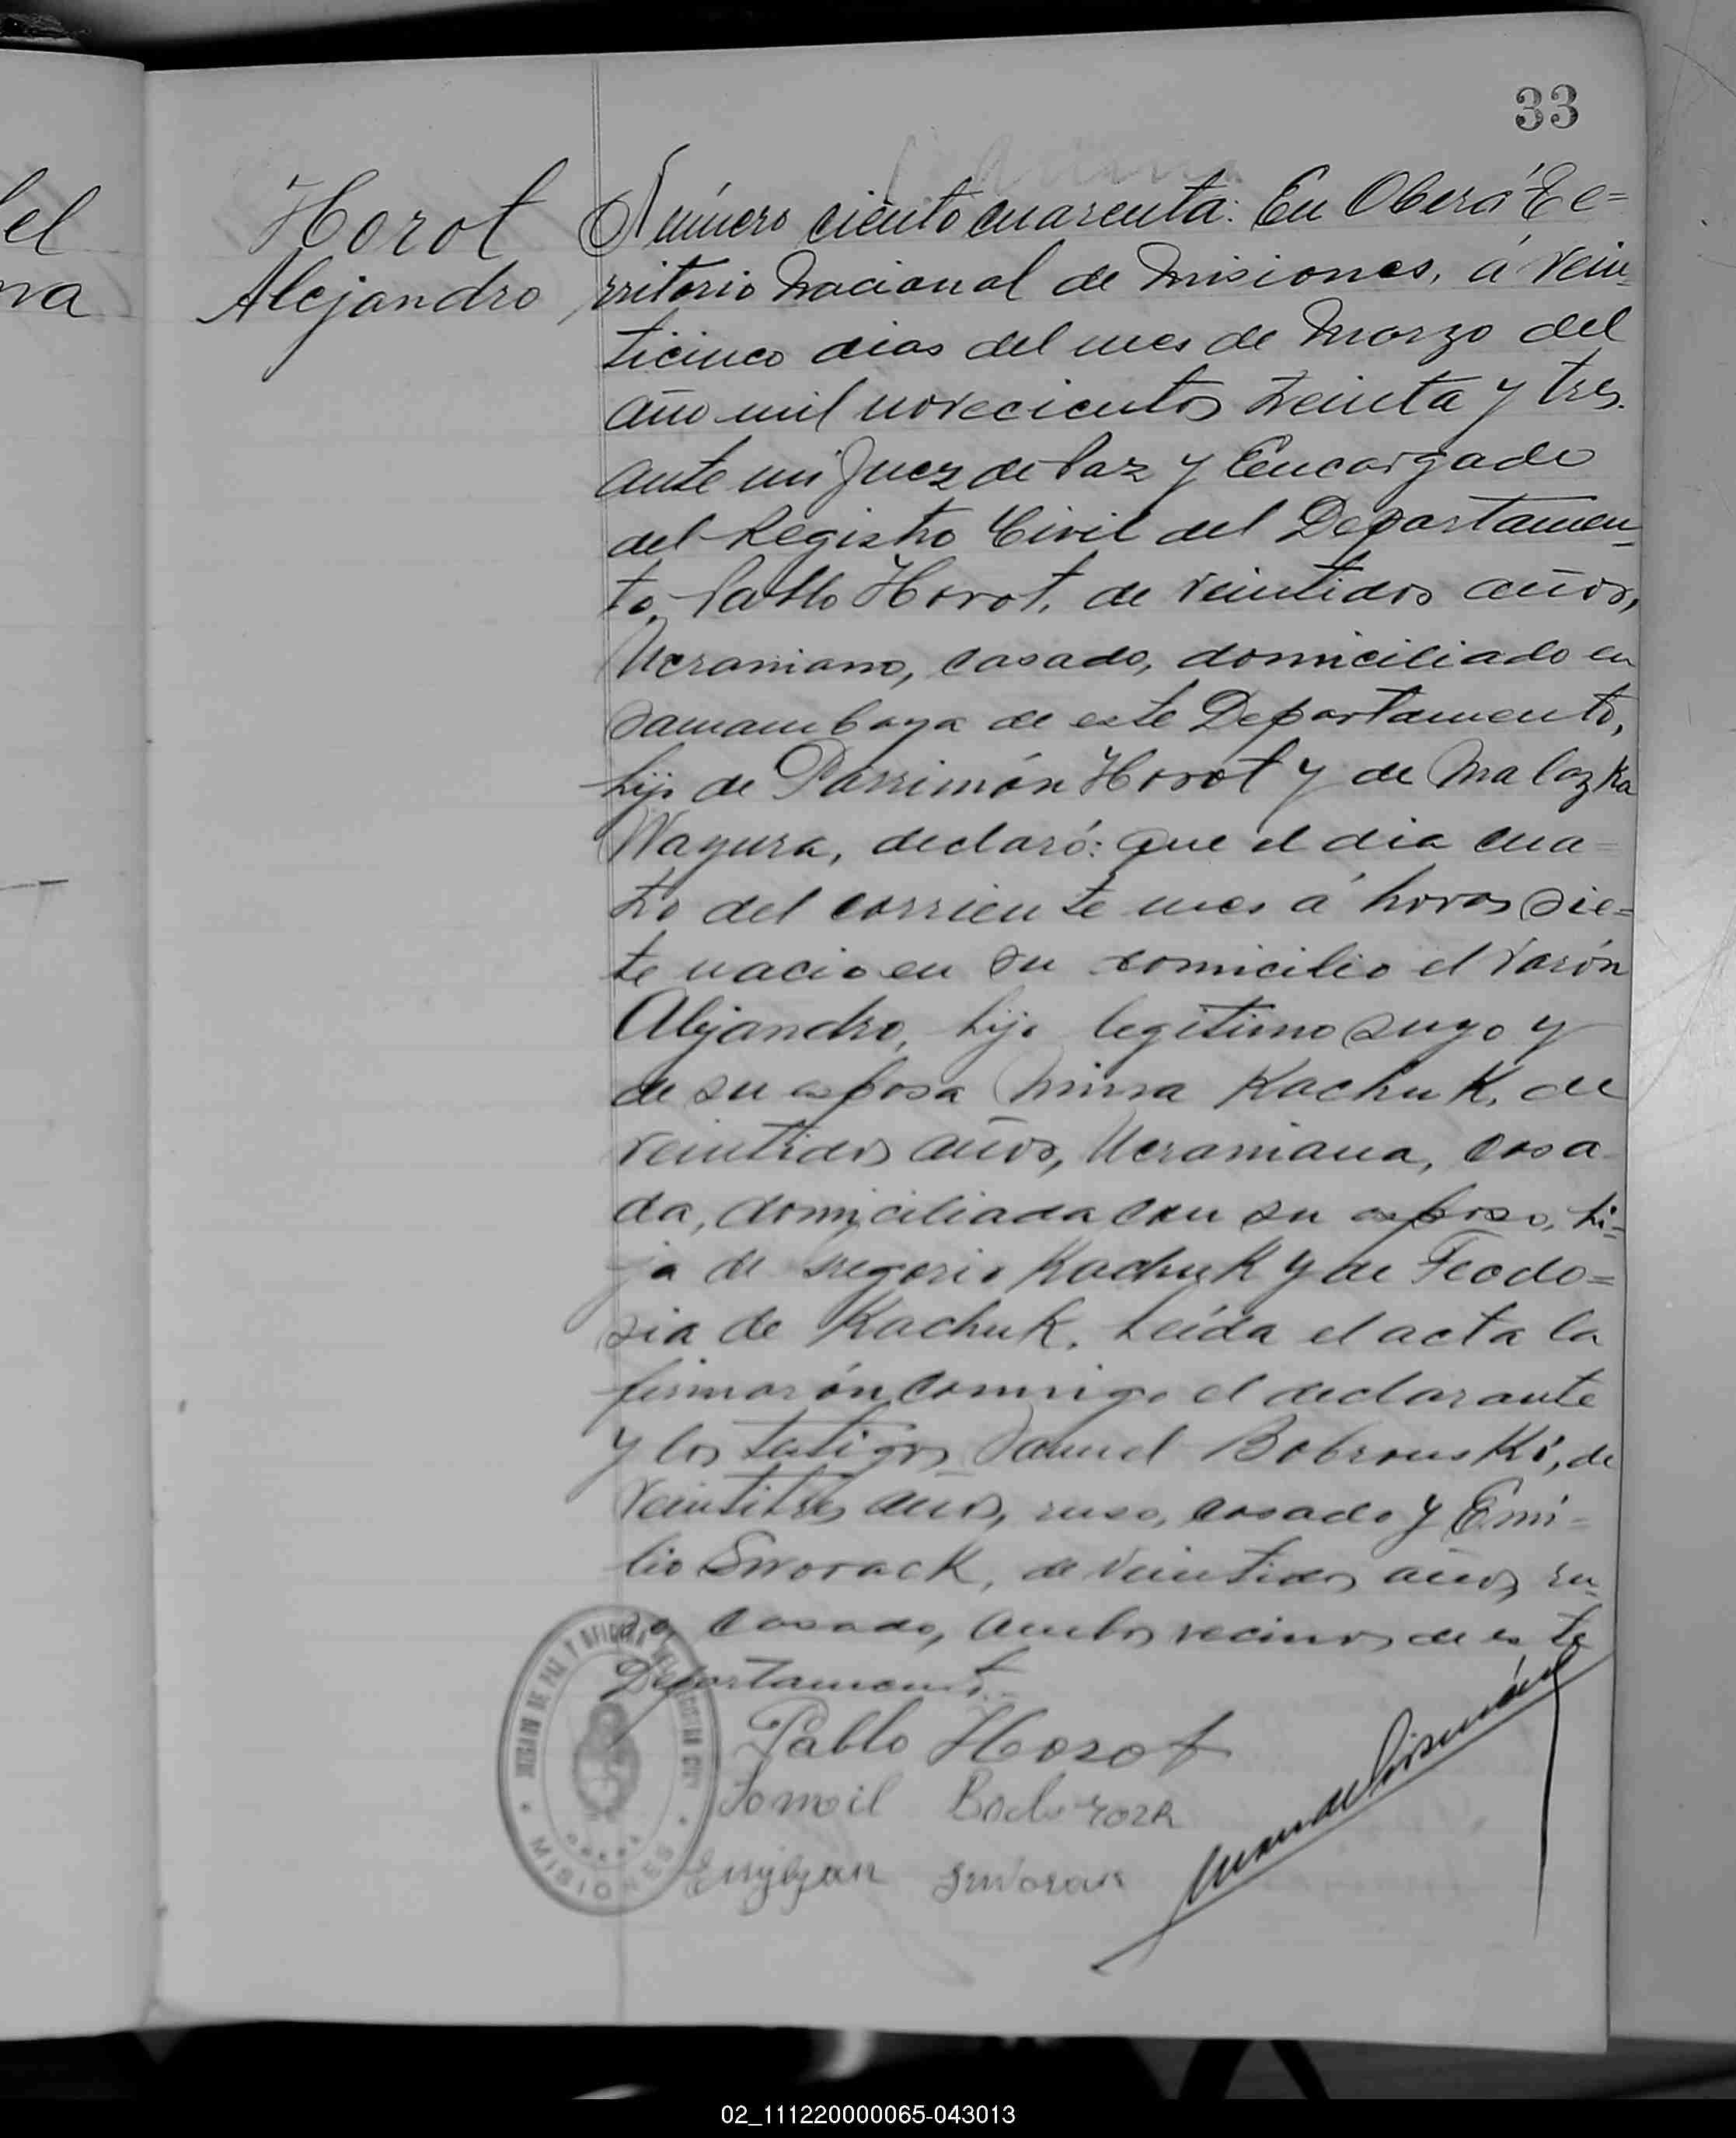 33
el
na
Horot
Alejandro
Número ciento cuarenta: En Oberá Te=
rritorio Nacional de Misiones, á vein-
ticinco dias del mes de Marzo del
año mil novecientos treinta y tres.
ante mi Juez de Paz y Encargado
del Registro Civil del Departamen-
to, Pablo Horot, de veintidos años,
Ucraniano, casado, domiciliado en
Samambaya de este Departamento,
hijo de Parrimón Horot y de Malazka
Wagura, declaró: que el dia cua-
tro del corriente mes á horas sie=
te nacio en su domicilio el varón
Alejandro, hijo legitimo suyo y
de su esposa Minna Kachuk, de
veintidos años, Ucraniana, casa
da, domiciliada con su esposo, hi-
ja de Gregorio Kachuk y de Feodo=
sia de Kachuk. Leída el acta la
firmarón conmigo el declarante
y los testigos Samuel Bobrouski, de
veintitres años, ruso, casado y Emi-
lio Sworack, de veintidos años, ru-
so, casado, ambos vecinos de este
Departamento.
Pablo Horot
JUZGADO DE PAZ Y OFICINA DEL REGISTRO CIVIL
OBERA
MISIONES
02_111220000065-043013